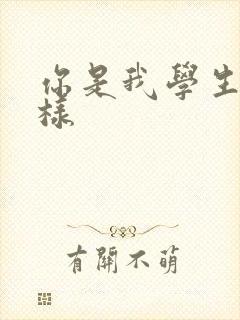 你是我學生
樣
有開不萌